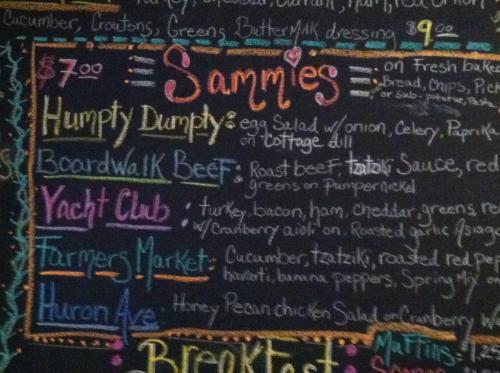 Cucumber, Croutons, Greens ButterMilk dressing $9.00
$7.00 Sammies on Fresh baked
Bread, Chips, Pick
or Sub-
Humpty Dumpty: egg Salad w/onion, Celery, Paprika
on Cottage dill
Boardwalk Beef: Roast beef, tzatziki Sauce, red
greens on Pumpernickel
Yacht Club: turkey, bacon, ham, cheddar, greens, re
w/Cranberry aioli on Roasted garlic Asiago
Farmers Market: Cucumber, tzatziki, roasted red pep
havarti, banana peppers, Spring Mix
Huron Ave: Honey Pecan chicken Salad on Cranberry W
Breakfast: Muffins: 1.25